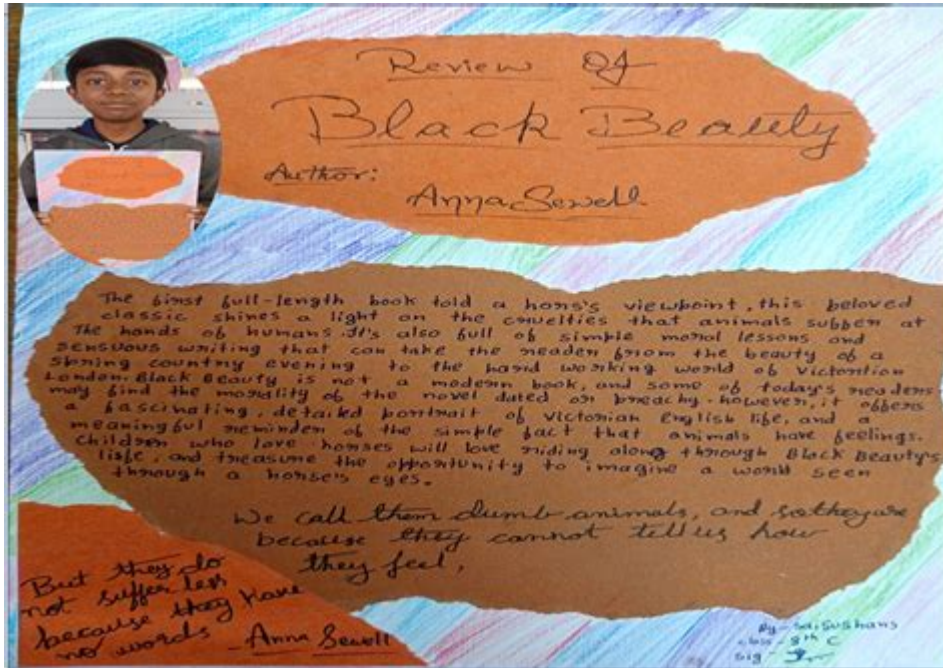 Review Of
Black Beauty
Author:
Anna Sewell
The first full-length book told a hors's viewpoint, this beloved
classic shines a light on the cruelties that animals suffer at
The hands of humans. It's also full of simple moral lessons and
sensuous writing that can take the reader from the beauty of a
spring country evening to the hard working world of Victortion
London. Black Beauty is not a modern book, and some of today's readers
may find the morality of the novel dated or preachy. however, it offers
a fascinating, detailed portrait of Victorian English life, and a
meaningful reminder of the simple fact that animals have feelings.
Children who love horses will love riding along through Black Beauty's
life, and treasure the opportunity to imagine a world seen
through a horse's eyes.
We call them dumb animals, and so they are
because they cannot tell us how
they feel,
But they do
not suffer less
because they have
no words
- Anna Sewell
By - Sai Sushans
class - 8th C
Sig -